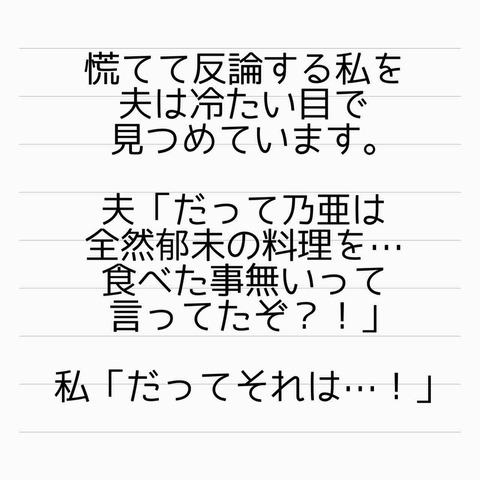 慌てて反論する私を
夫は冷たい目で
見つめています。
夫「だって乃亜は
全然郁未の料理を…
食べた事無いって
言ってたぞ？！」
私「だってそれは…！」